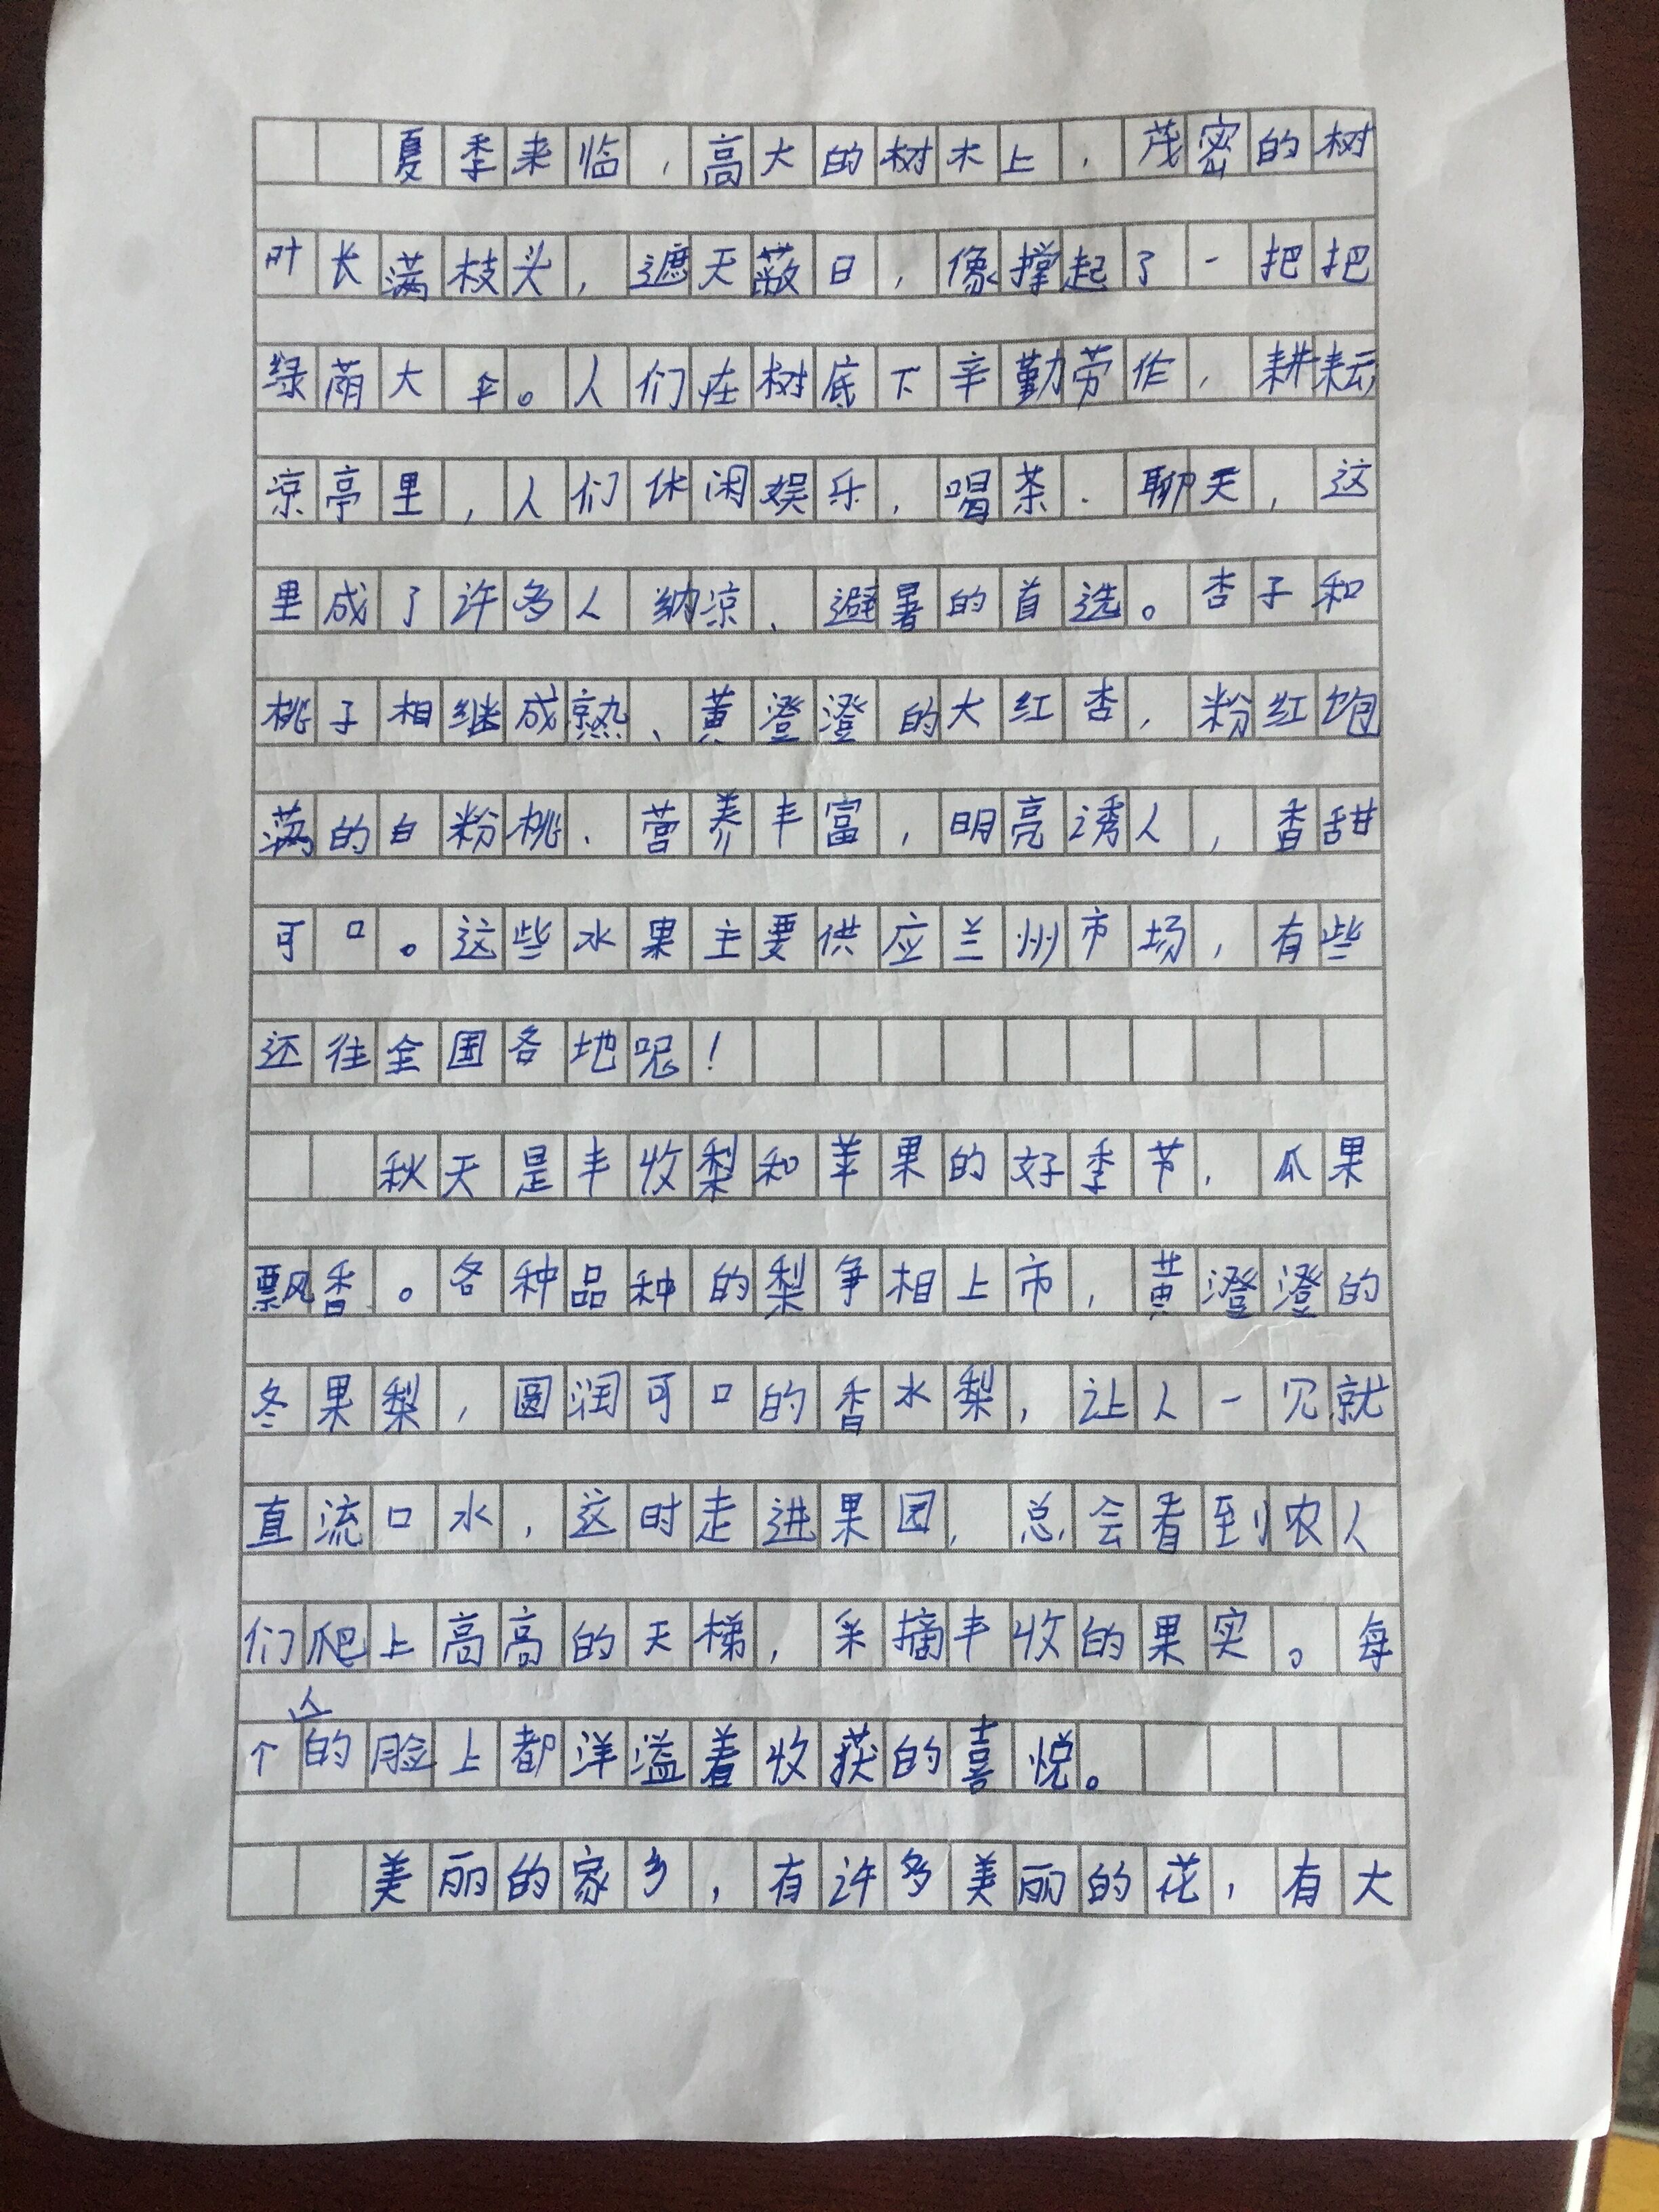 夏季来临，高大的树木上，茂密的树
叶长满枝头，遮天蔽日，像撑起了一把把
绿荫大伞。人们在树底下辛勤劳作，耕耘
凉亭里，人们休闲娱乐，喝茶．聊天，这
里成了许多人纳凉、避暑的首选。杏子和
桃子相继成熟、黄澄澄的大红杏，粉红饱
满的白粉桃．营养丰富，明亮诱人，香甜
可口。这些水果主要供应兰州市场，有些
还往全国各地呢！
秋天是丰收梨和苹果的好季节，瓜果
飘香。各种品种的梨争相上市，黄澄澄的
冬果梨，圆润可口的香水梨，让人一见就
直流口水，这时走进果园，总会看到农人
们爬上高高的天梯，采摘丰收的果实。每
个人的脸上都洋溢着收获的喜悦。
美丽的家乡，有许多美丽的花，有大